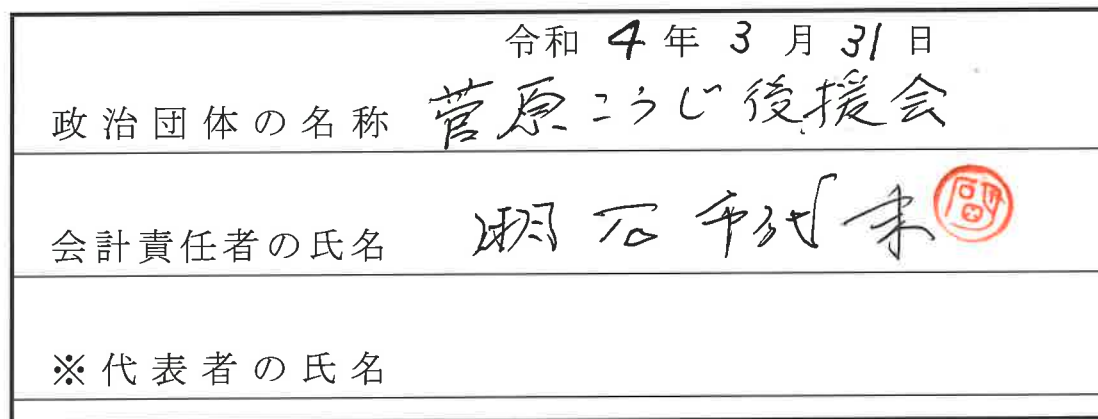 令和 4 年 3 月 31 日
政治団体の名称 菅原こうじ後援会
会計責任者の氏名 明石
※代表者の氏名